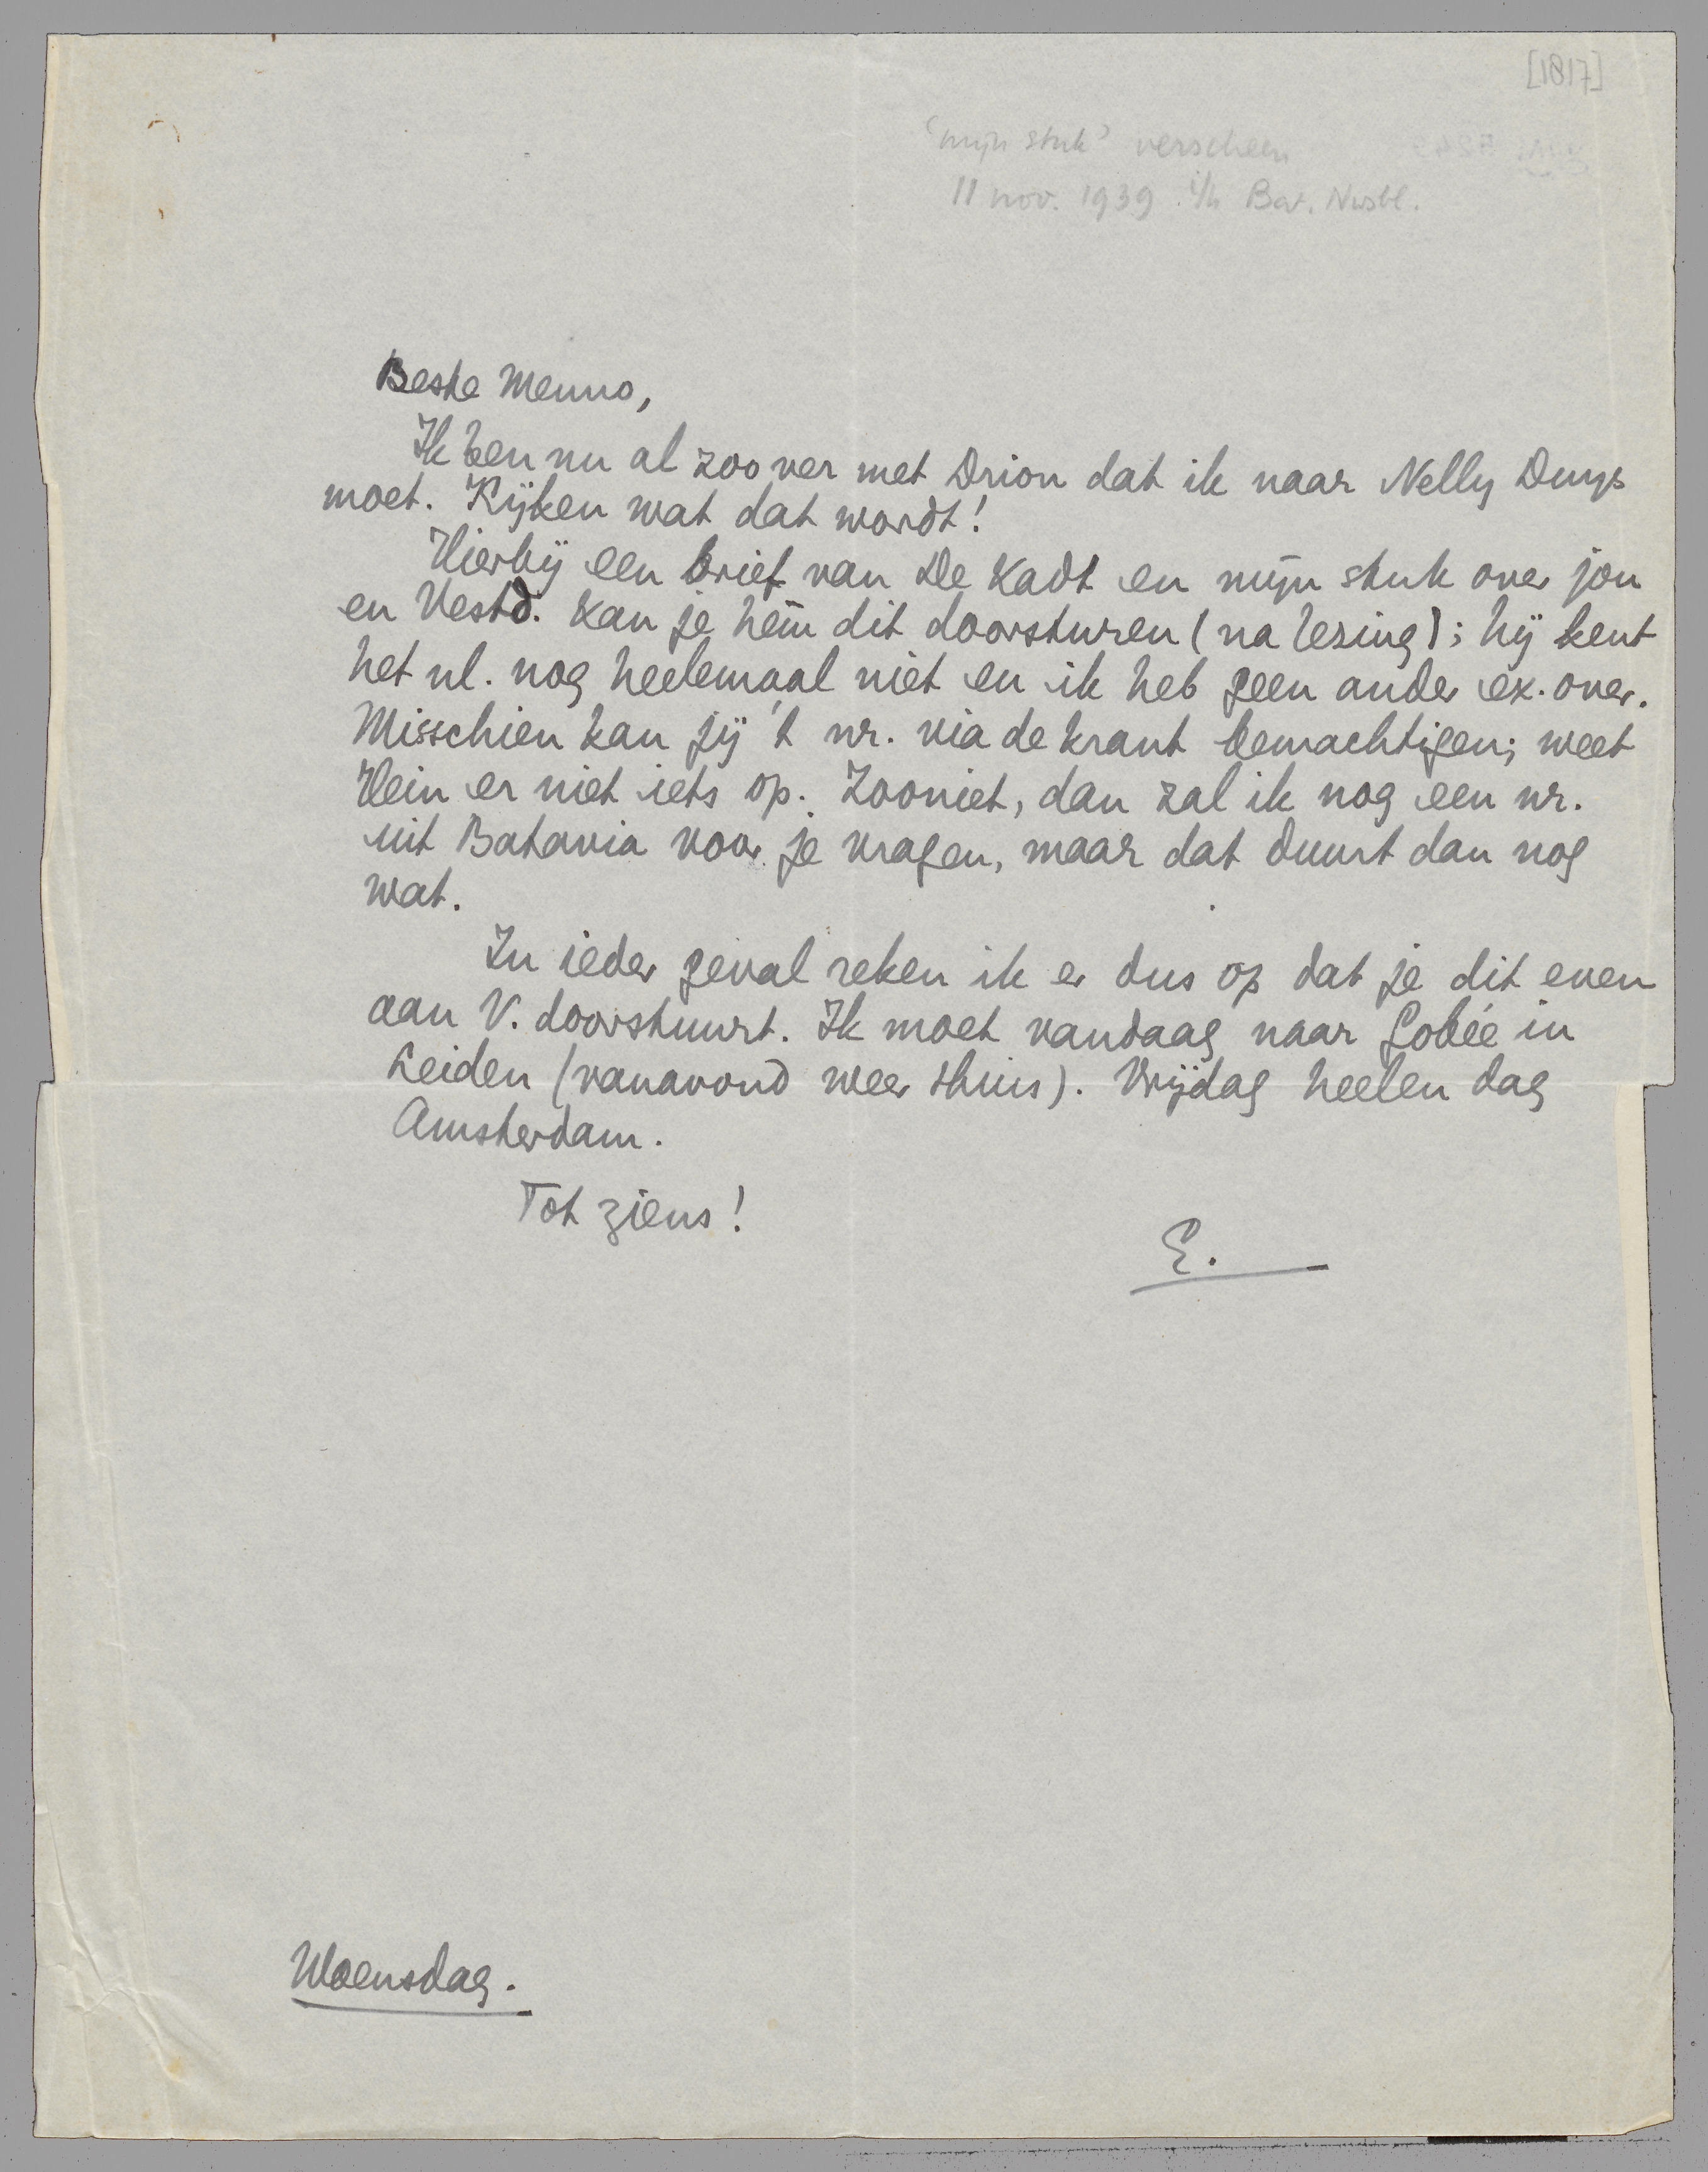 [1817]
'mijn stuk' verscheen
11 nov. 1939 i/h Bat. Nwsbl.
Beste Menno,
Ik ben nu al zoo ver met Drion dat ik naar Nelly Duys
moet. Kijken wat dat wordt!
Hierbij een brief van De Kadt en mijn stuk over jou
en Vestd. Kan je hem dit doorsturen (na lezing); hij kent
het nl. nog heelemaal niet en ik heb geen ander ex. over.
Misschien kan jij 't nr. via de krant bemachtigen; weet
Hein er niet iets op. Zooniet, dan zal ik nog een nr.
uit Batavia voor je vragen, maar dat duurt dan nog
wat.
In ieder geval reken ik er dus op dat je dit even
aan V. doorstuurt. Ik moet vandaag naar Gobée in
Leiden (vanavond weer thuis). Vrijdag heelen dag
Amsterdam.
Tot ziens!
E.
Woensdag.